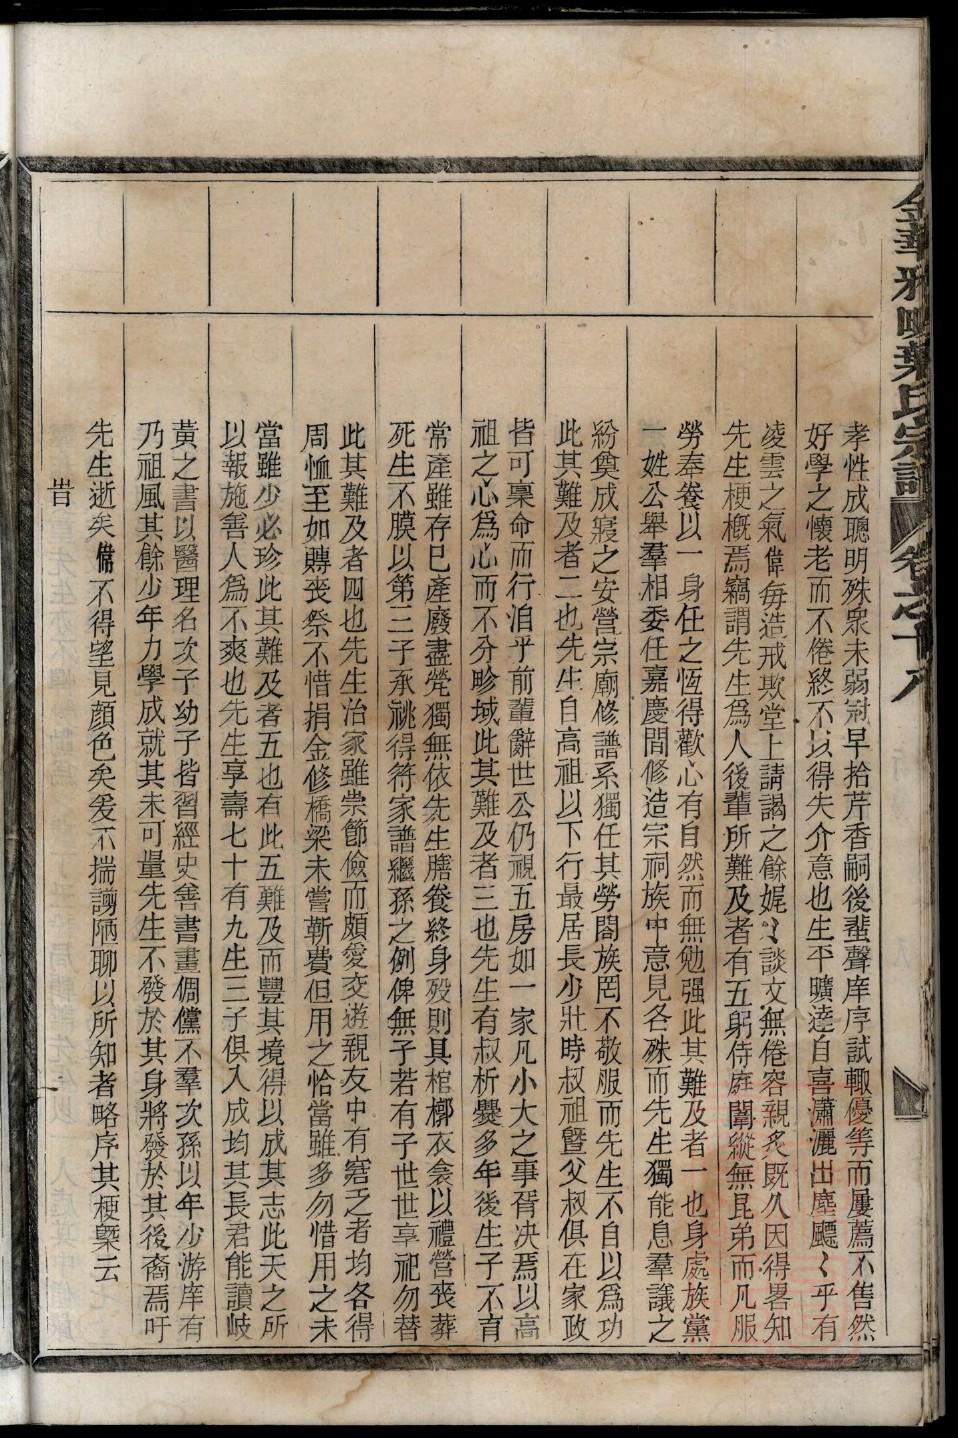 孝性成聰明殊眾未弱冠早拾芹香嗣後蜚聲庠序試輙優等而屢薦不售然
好學之懷老而不倦終不以得失介意也生平曠達自喜瀟灑出塵飃〻乎有
凌雲之氣偉每造戒欺堂上請謁之餘娓〻談文無倦容親炙既久因得畧知
先生梗概焉竊謂先生爲人後輩所難及者有五躬侍庭闈縱無昆弟而凡服
勞奉養以一身任之恆得歡心有自然而無勉强此其難及者一也身處族黨
一姓公舉羣相委任嘉慶間修造宗祠族中意見各殊而先生獨能息羣議之
紛奠成寢之安營宗廟修譜系獨任其勞閤族罔不敬服而先生不自以爲功
此其難及者二也先生自高祖以下行最居長少壯時叔祖曁父叔俱在家政
皆可稟命而行洎乎前輩辭世公仍視五房如一家凡小大之事胥决焉以高
祖之心爲心而不分畛域此其難及者三也先生有叔析爨多年後生子不育
常產雖存巳產廢盡煢獨無依先生膳養終身歿則具棺槨衣衾以禮營喪葬
死生不膜以第三子承祧得符家譜繼孫之例俾無子若有子世世享祀勿替
此其難及者四也先生治家雖崇節儉而頗愛交遊親友中有窘乏者均各得
周恤至如賻喪祭不惜捐金修橋梁未嘗靳費但用之恰當雖多勿惜用之未
當雖少必珍此其難及者五也有此五難及而豐其境得以成其志此天之所
以報施善人爲不爽也先生享壽七十有九生三子俱入成均其長君能讀岐
黃之書以醫理名次子幼子皆習經史善書畫倜儻不羣次孫以年少游庠有
乃祖風其餘少年力學成就其未可量先生不發於其身將發於其後裔焉吁
先生逝矣偹不得望見顏色矣爰不揣謭陋聊以所知者略序其梗槩云
旹
金華
葉氏宗譜